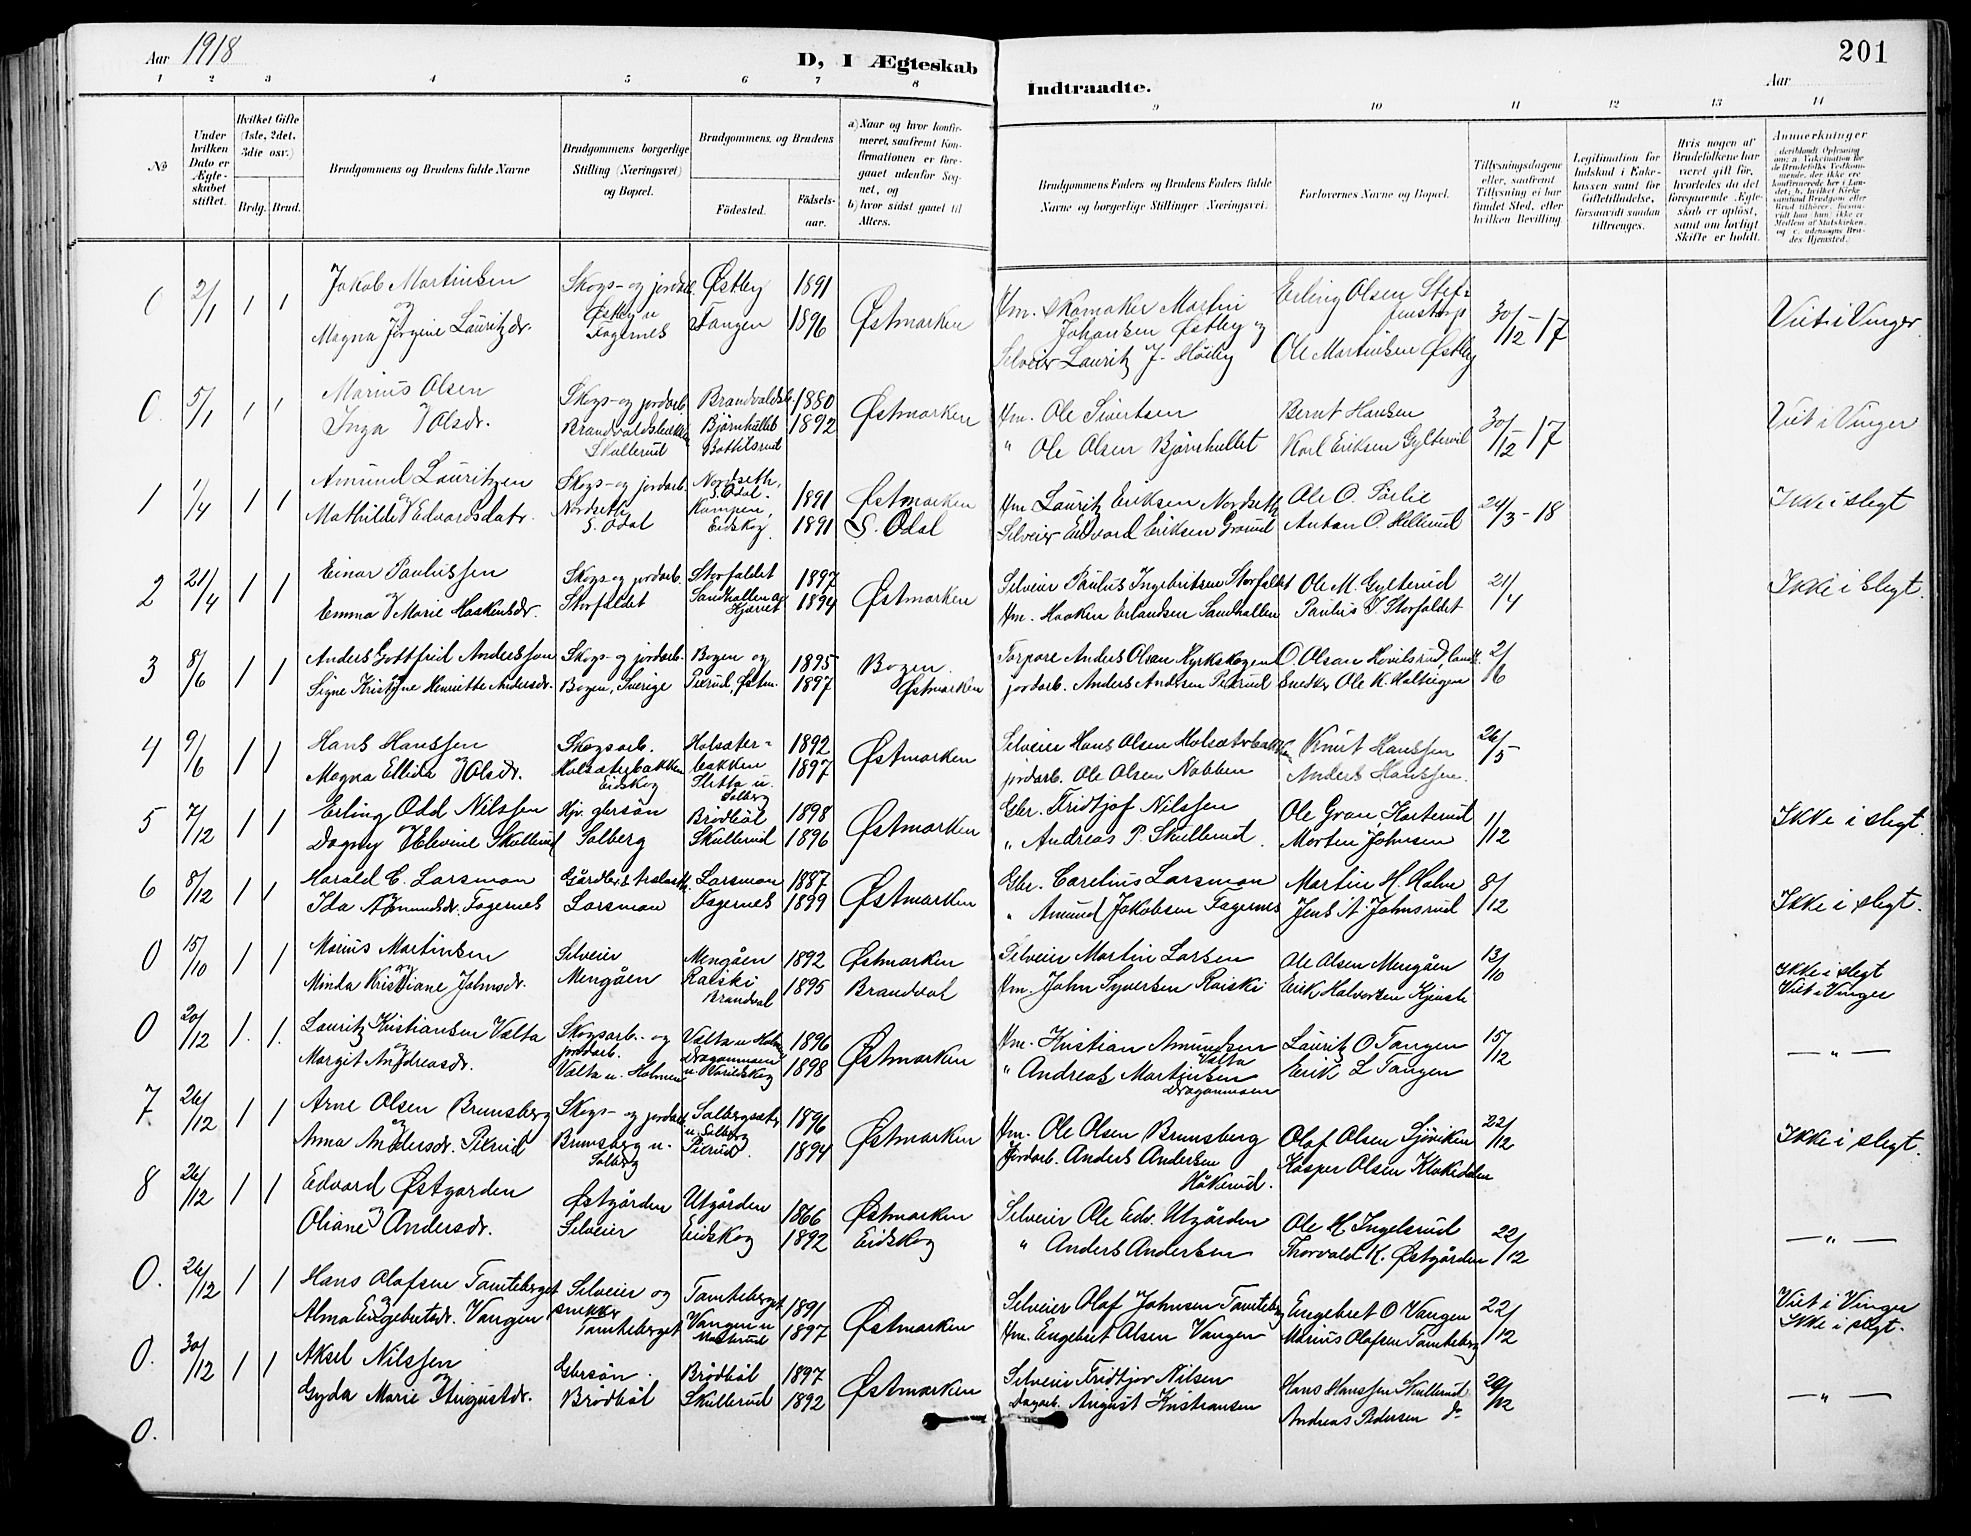 Aar 1918
D, I Ægteskab
Indtraadte.
Aar
201
1 2 3 4 5 6 7 8 9 10 11 12 13 14
No
Under hvilken Dato er Ægteskabet stiftet.
Hvilket Gifte (1ste, 2det, 3die osv.)
Brdg. Brud.
Brudgommens og Brudens fulde Navne
Brudgommens borgerlige Stilling (Næringsvei) og Bopæl.
Brudgommens og Brudens
Fødested.
Fødselsaar.
a) Naar og hvor konfirmeret, saafremt Konfirmationen er foregaaet udenfor Sognet, og
b) hvor sidst gaaet til Alters.
Brudgommens Faders og Brudens Faders fulde Navne og borgerlige Stillinger Næringsvei.
Forlovernes Navne og Bopæl.
Tillysningsdagene eller, saafremt Tillysning ei har fundet Sted, efter hvilken Bevilling.
Legitimation for Indskud i Enkekassen samt for Giftetilladelse, forsaavidt saadan tiltrænges.
Hvis nogen af Brudefolkene har været gift før, hvorledes da det foregaaende Ægteskab er opløst, samt om lovligt Skifte er holdt.
Anmerkninger
0 2/1 1 1 Jakob Martinsen og Magna Jørgine Lauritzdr. Skogs- og jordarb. Østby u Fagernes Østby Tangen 1891 1896 Østmarken Hm. Skomaker Martin Johansen Østby og Selveier Lauritz J. Høiby Erling Olsen Ole Martinsen Østby 30/12-17 Viet i Vinger
0. 5/1 1 1 Marius Olsen og Inga Olsdr. Skogs- og jordarb. Brandvoldsbakken Skullerud Brandvoldsb. Bjørnhullet 1880 1892 Østmarken Hm. Ole Sivertsen " Ole Olsen Bjørnhullet Bernt Hansen Karl Eriksen Gyltervil 30/12-17 Viet i Vinger
1 1/4 1 1 Amund Lauritzen og Mathilde Edvardsdatr. Skogs- og jordarb. Nordseth S. Odal Nordseth, S. Odal. Kampen, Eidskog 1891 1891 Østmarken S. Odal Hm Lauritz Eriksen Nordseth Selveier Edvard Eriksen Grøsund Ole O. Sørlie Anton O. Hellerud 24/3-18 Ikke i slegt
2 21/4 1 1 Einar Paulussen og Emma Marie Haakensdr. Skogs- og jordarb. Storfaldet Storfaldet Sandhallen og Hjørnet 1897 1894 Østmarken Selveier Paulus Ingebritsen Storfaldet Hm. Haaken Erlandsen Sandhallen Ole M. Gylterud Paulus I Storfaldet 21/4 Ikke i Slegt.
3 8/6 1 1 Anders Gottfrid Andersson og Signe Kristine Henriette Andersdr. Skogs- og jordarb. Bogen, Sverige Bogen og Pærud, Østm. 1895 1897 Bogen. Østmarken Torpare Anders Olsan Kyrkskogen jordarb. Anders Andersen Pærud O. Olsan Hovilsrud, Snedker Ole K. Halteigen 2/6
4 9/6 1 1 Hans Hanssen og Magna Ellida Olsdr. Skogsarb. Holsæterbakken Eidskog Holsæterbakken Flitta u. Solberg 1892 1897 Østmarken Selveier Hans Olsen Holsæterbakken jordarb. Ole Olsen Nabben Knut Hanssen Anders Hanssen. 26/5
5 7/12 1 1 Erling Odd Nilssen og Dagny Elevine Skullerud Hjv. gbrsøn Solberg Brödböl Skullerud 1898 1896 Østmarken Gbr. Fridtjof Nilssen " Andreas P. Skullerud. Ole Gran Harterud Morten Johnsen 1/12 Ikke i slegt.
6 8/12 1 1 Harald C. Larsmon og Ida Amundsdr. Fagernes Larsmon Larsmon Fagernes 1887 1899 Østmarken Gbr. Carelius Larsmon " Amund Jakobsen Fagernes Martin H. Holm Jens A. Johnsrud 8/12 Ikke i slegt.
0 15/10 1 1 Marius Martinsen og Minda Kristiane Johnsdr. Selveier Mengåen Mengåen Raiski Brandval 1892 1895 Østmarken Brandval Selveier Martin Larsen Hm. John Syversen Raiski Ole Olsen Mengåen Erik Halvorsen 13/10 Ikke i slegt Viet i Vinger
0 20/12 1. 1. Lauritz Kristiansen Valta og Margit Andreasdr. Skogsarb. og jordarb. Valta u. Holmen Valta u Holm Dragonmoen u Varildskog 1896 1898 Østmarken Hm. Kristian Amundsen Valta " Andreas Martinsen Dragonmoen Lauritz O Tangen Erik L Tangen 15/12 — " —
7 26/12 1 1 Arne Olsen Brunsberg og Anna Andersdr. Pilrud Skogs- og jordarb. Brunsberg u. Solberg Solbergsætr u. Solberg Pilrud. 1896 1894 Østmarken Hm. Ole Olsen Brunsberg Jordarb. Anders Andersen Håkerud. Olaf Olsen Sjöviken Kasper Olsen 22/12 Ikke i slegt.
8 26/12 1 1 Edvard Østgarden og Oliane Andersdr. Østgården Selveier Utgården Eidskog 1866 1892 Østmarken Eidskog Selveier Ole Edv. Utgården " Anders Andersen Ole H. Ingelsrud Thorvald K. Østgården 22/12 — " —
0. 26/12 1 1 Hans Olafsen Tamteberget og Alma Engebretsdr. Vangen Selveier og snekker Tamteberget Tamteberget Vangen u 1891 1897 Østmarken Selveier Olaf Johnsen Tamteberg Hm. Engebret Olsen Vangen Engebret O Vangen Marius Olafsen Tamteberg 22/12 Viet i Vinger Ikke i slegt.
0. 30/12 1 1 Aksel Nilssen og Gyda Marie Augustdr. Gbrsøn. Brödböl Brödböl Skullerud 1897 1892 Østmarken Selveier Fridtjov Nilsen Dagarb. August Kristiansen Hans Hanssen Skullerud Andreas Pedersen do 29/12 — " —
0.